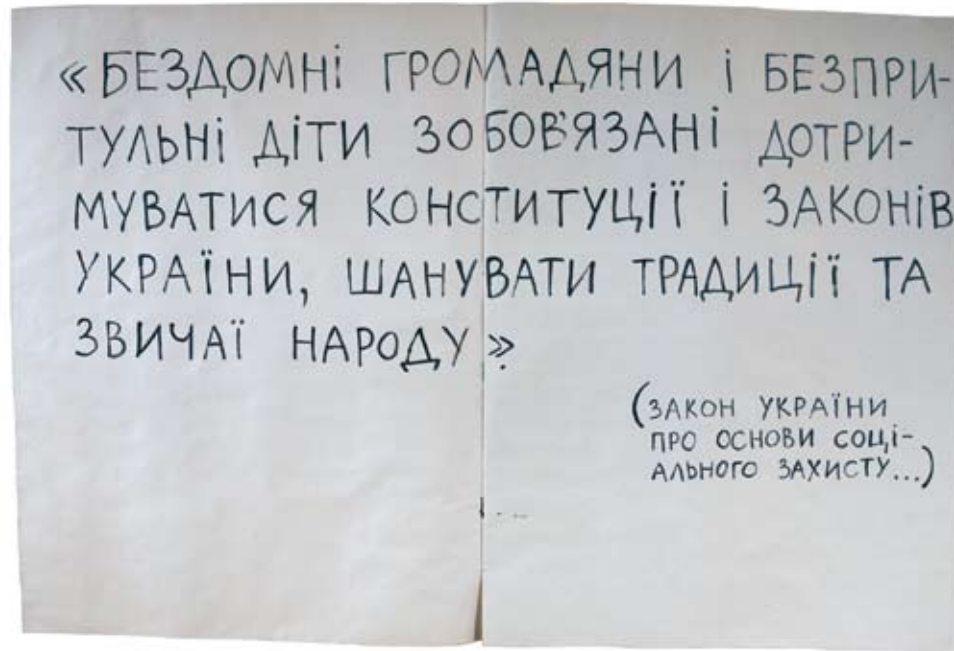 «БЕЗДОМНІ ГРОМАДЯНИ І БЕЗПРИ-
ТУЛЬНІ ДІТИ ЗОБОВ'ЯЗАНІ ДОТРИ-
МУВАТИСЯ КОНСТИТУЦІЇ І ЗАКОНІВ
УКРАЇНИ, ШАНУВАТИ ТРАДИЦІЇ ТА
ЗВИЧАЇ НАРОДУ».
(ЗАКОН УКРАЇНИ
ПРО ОСНОВИ СОЦІ-
АЛЬНОГО ЗАХИСТУ...)